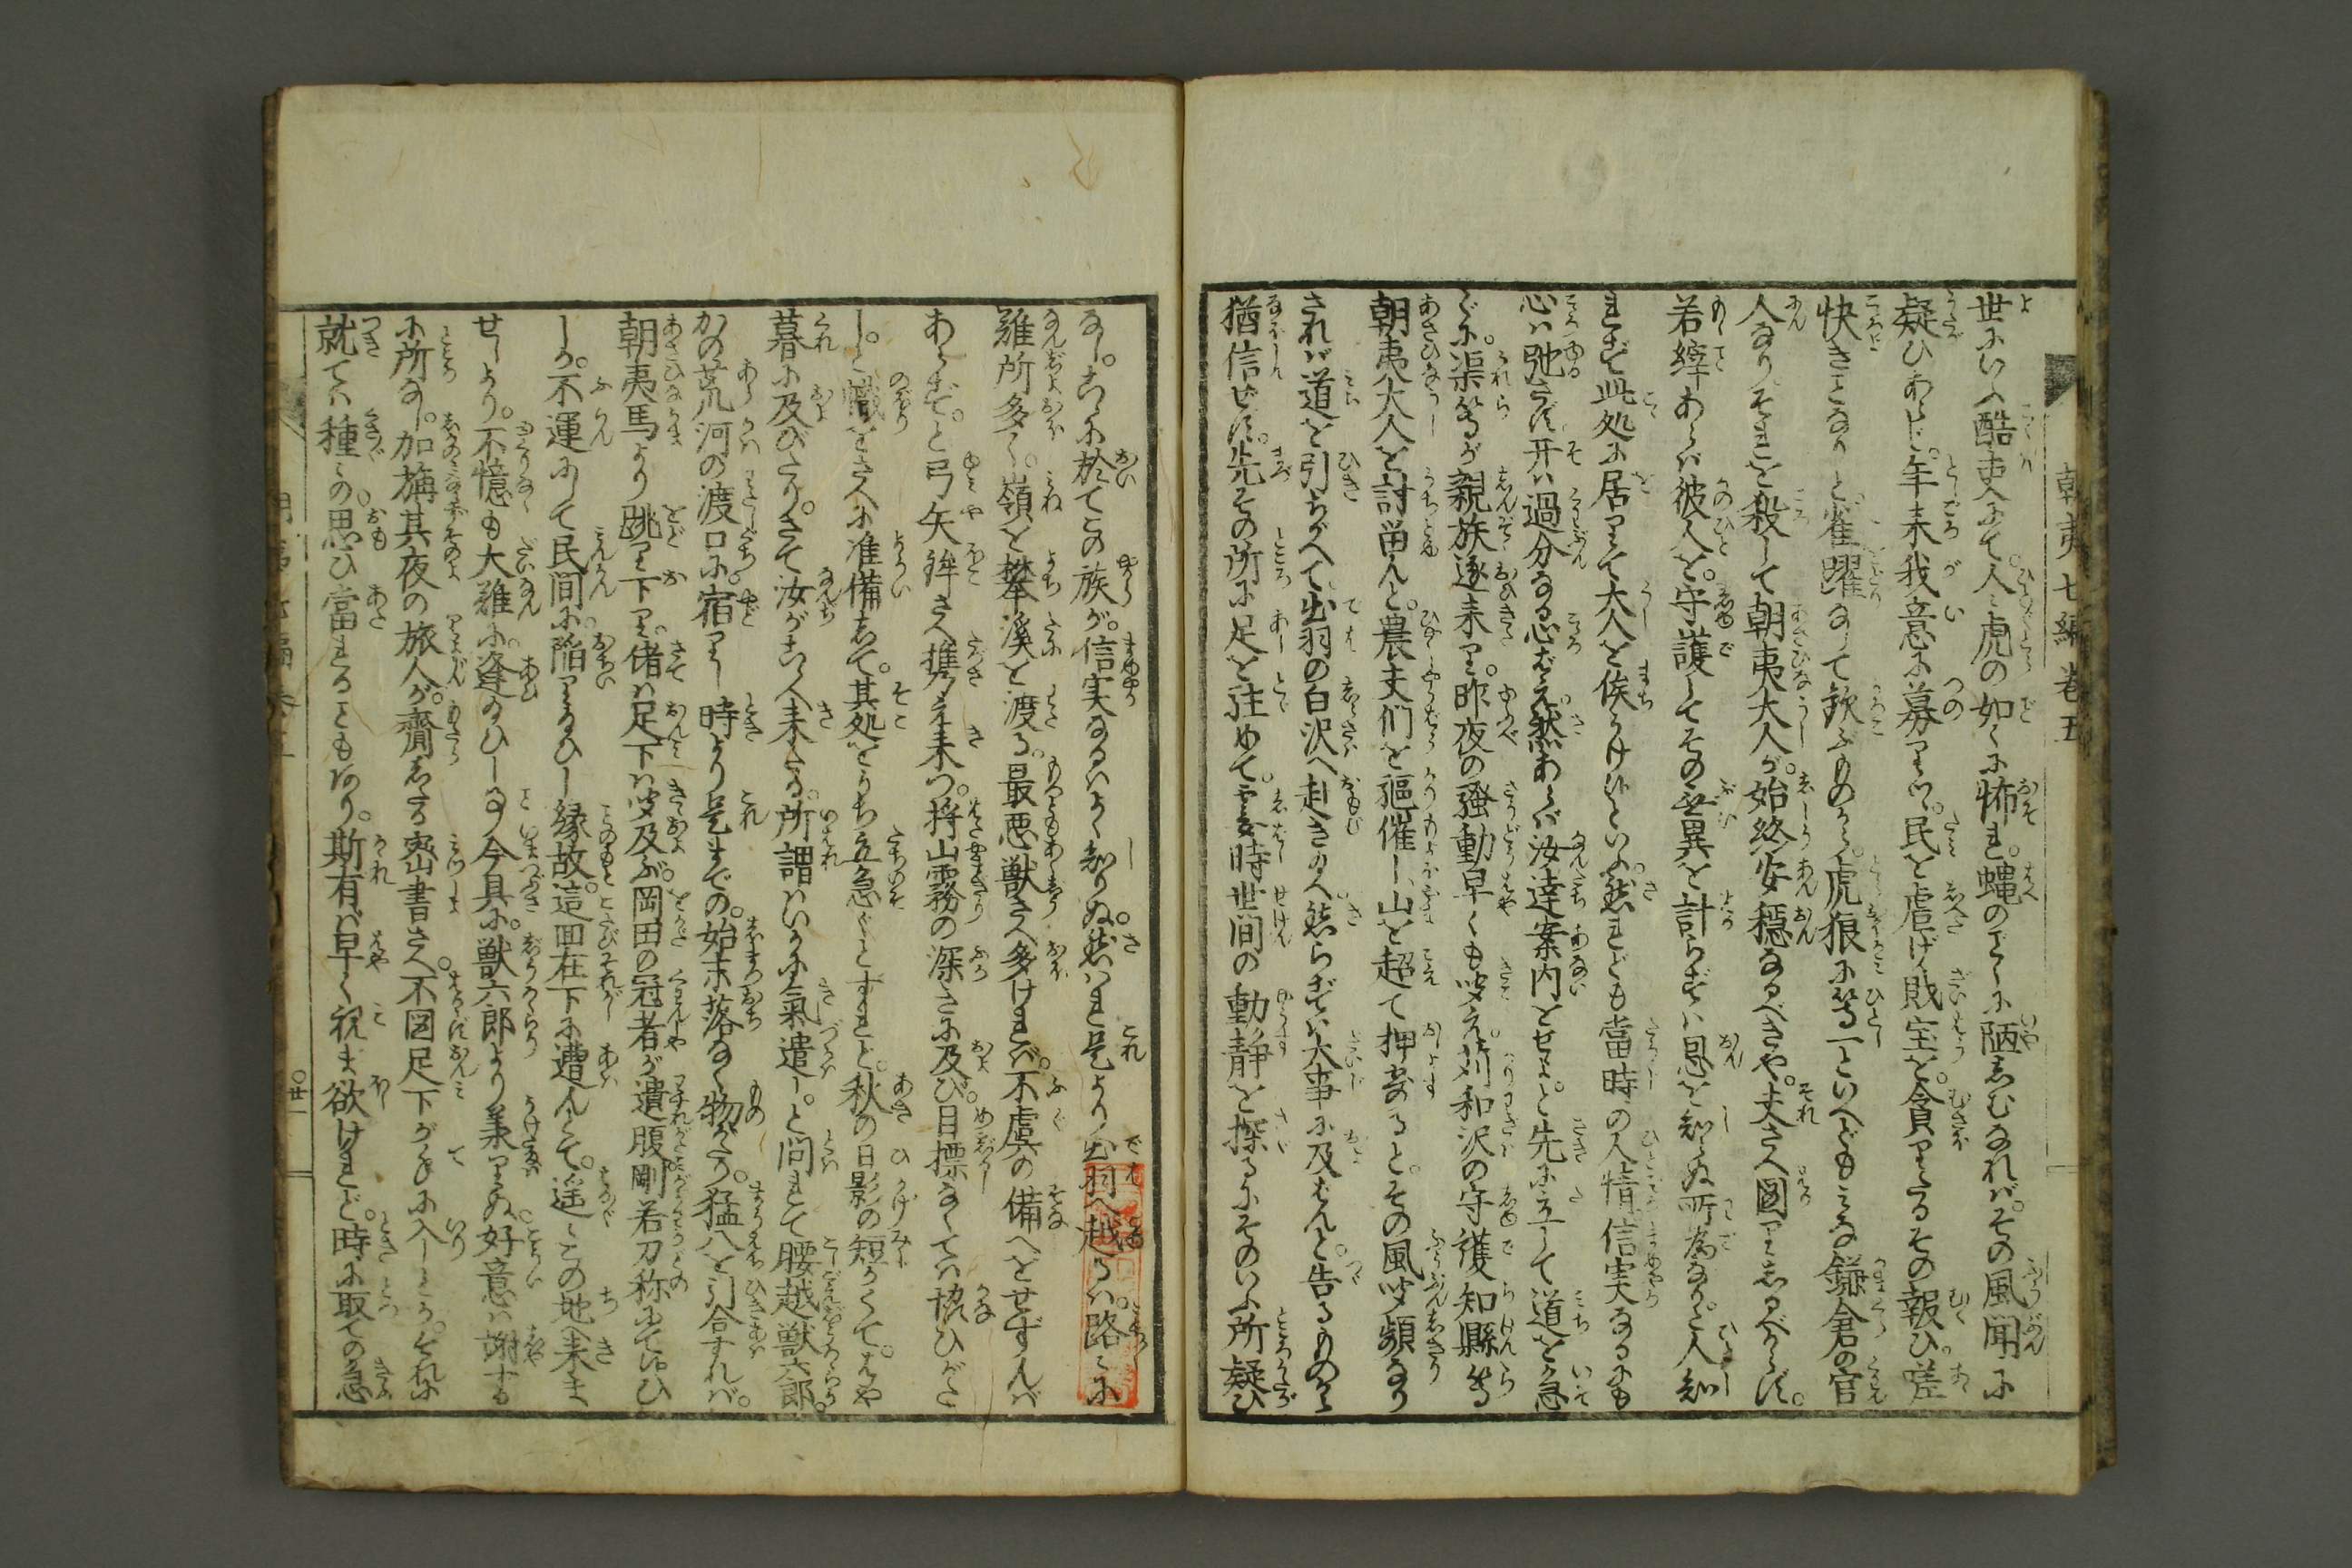 朝夷七編巻五
世にいふ酷吏にて。人々虎の如くに怖れ。蠅のごとくに陋しむなれば。その風聞に
疑ひあらじ。年来我意に募りつゝ。民を虐げ財宝を。貪りたるその報ひ。嗟
快きことなりと雀躍なして歓ぶものから。虎狼に等しといへどもみな鎌倉の官
人なり。それを殺して朝夷大人が。始終安穏なるべきや。夫さへ図りしるべからず。
若縡あらば彼人を。守護してその無異を計らずは恩を知らぬ所為なりと。人知
れず此処に居りて大人を俟うけ候といふ。然れども当時の人情信実なるにも
心は弛さず。开は過分なる心ばえ。然あらば汝達案内をせよ。と先に立して道を急
ぐに。渠等が親族逐来り。昨夜の騒動早くも聞え。苅和沢の守護知縣等
朝夷大人を討畄んと。農夫們を駈催し。山を超て押寄ると。その風聞頻なり
されば道を引ちがへて。出羽の白沢へ赴き給へ。然らずは大事に及ばんと。告るものから
猶信ぜず。先その所に足を駐めて。霎時世間の動静を探るにそのいふ所疑ひ
なし。こゝに於てこの族が。信実なるはよく知りぬ。然はれ是より出羽へ越るは。路々に
難所多く。嶺を攀溪を渡る。最悪獣さへ多ければ。不虞の備へをせずんば
あらず。と弓矢鉾さへ携へ来つ。将山霧の深きに及び。目標なくては協ひがた
し。と幟をさへに准備して。其処をうち立急ぐとすれど。秋の日影の短くて。はや
暮に及びたり。さて汝がこゝへ来たる。所謂はいかに気遣し。と問れて腰越獣六郎。
かの荒河の渡口に。宿りし時より是までの。始末落なく物がたり。猛八を引合すれば。
朝夷馬より跳り下り。偖は足下は聞及ぶ。岡田の冠者が遺腹剛若刀称にて候ひ
しか。不運にして民間に。陥り給ひし縁故。這回在下に遭んとて。遥々この地へ来ま
せしより。不憶も大難に。逢給ひし事今具に。獣六郎より美りぬ。好意は謝する
に所なし。加旃其夜の旅人が。齎したる密書さへ。不図足下が手に入しとか。それに
就ては種々の思ひ當れることもあり。斯有ば早く視ま欲けれど。時に取ての急
〇廿一